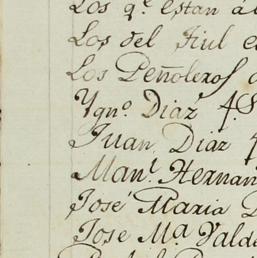 Los q.e estan á
Los del
Los Peñoleros
Ygn.o Diaz 4.
Juan Diaz 4
Man.l Hernan
José Maria D
Jose M.a Valde